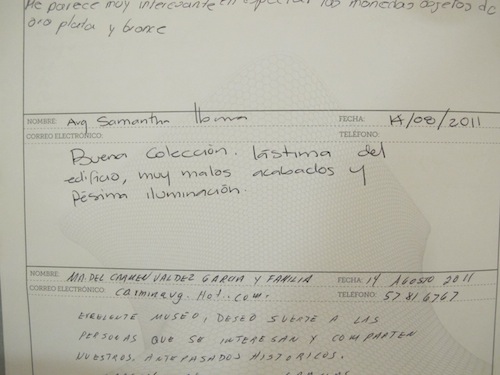 Me parece muy interesante en especial las monedas objetos de
oro plata y bronce
NOMBRE: Arq Samantha FECHA: 14/08/2011
CORREO ELECTRÓNICO: TELÉFONO:
Buena colección. lástima del
edificio, muy malos acabados y
pésima iluminación.
NOMBRE: MA. DEL CARMEN VALDEZ GARCIA Y FAMILIA FECHA: 14 AGOSTO 2011
CORREO ELECTRÓNICO: carminavg. Hot. com. TELÉFONO: 57816767
EXELENTE MUSEO, DESEO SUERTE A LAS
PERSONAS QUE SE INTERESAN Y COMPARTEN
NUESTROS. ANTEPASADOS HISTORICOS.